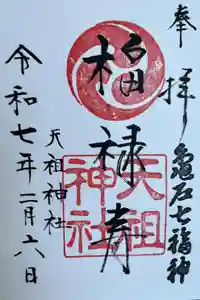 奉拝
亀戸七福神
福禄寿
天祖
神社
天祖神社
令和七年二月六日